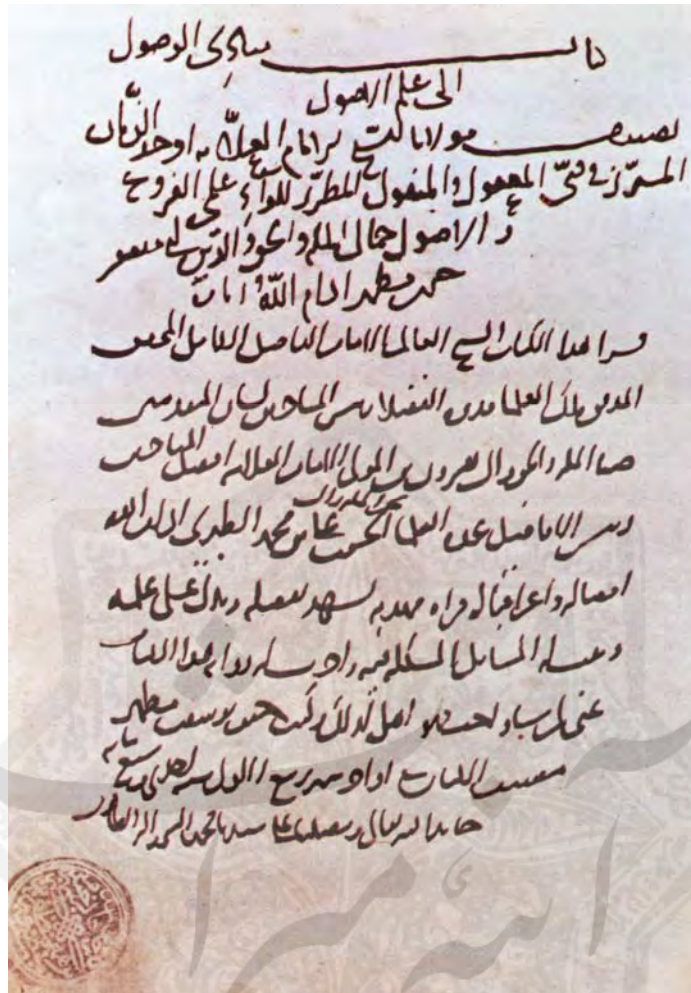 كتاب مبادى الوصول
الى علم الاصول
تصنيف مولانا الشيخ الامام العلامه اوحد الزمان
المبرز في فنى المعقول والمنقول المطرز للواء علمى الفروع
و الاصول جمال المله والحق والدين ابى منصور
حسن بن مطهر ادام الله ايامه
قرا هذا الكتاب الشيخ العالم الامام الفاضل الكامل المحقق
المدقق ملك العلما قدوه الفضلا رئيس المباحثين لسان المتقدمين
ضيا المله والحق والدين هرون بن المولى الامام العلامه افضل
رئيس الافاضل العلما الحسن بن على بن محمد الطبرى ادام الله
افضاله واعز اقباله قراه مهذبه تشهد بفضله وتدل على علمه
المسائل المشكله فيه وقد له روايه هذا الكتاب
عنى لمن شاء واحب فهو اهل لذلك وكتب حسن بن يوسف بن مطهر
مصنف الكتاب شهر ربيع الاول سنه احدى وسبعمايه
حامدا لله تعالى ومصليا على سيدنا محمد النبى واله الطاهرين